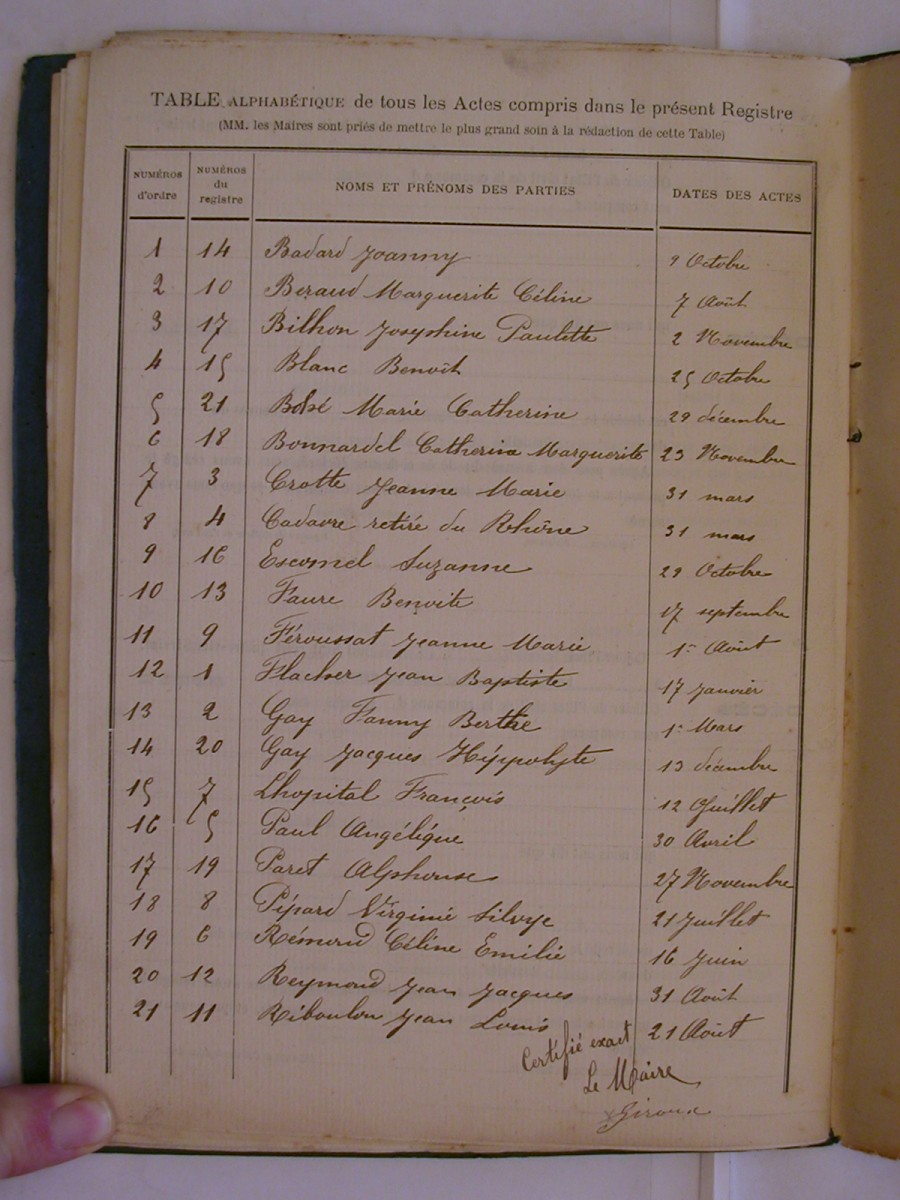 TABLE ALPHABÉTIQUE de tous les Actes compris dans le présent Registre
(MM. les Maires sont priés de mettre le plus grand soin à la rédaction de cette Table)
NUMÉROS d'ordre NUMÉROS du registre NOMS ET PRÉNOMS DES PARTIES DATES DES ACTES
1 14 Badard Joanny 9 Octobre
2 10 Beraud Marguerite Céline 7 Août
3 17 Bilhon Joséphine Paulette 2 Novembre
4 15 Blanc Benoît 25 Octobre
5 21 Marie Catherine 29 décembre
6 18 Bonnardel Catherine Marguerite 23 Novembre
7 3 Crotte Jeanne Marie 31 mars
8 4 Cadavre retiré du Rhône 31 mars
9 16 Escomel Suzanne 29 Octobre
10 13 Faure Benoite 17 septembre
11 9 Féroussat Jeanne Marie 1er Août
12 1 Flacher Jean Baptiste 17 Janvier
13 2 Gay Fanny Berthe 1er Mars
14 20 Gay Jacques Hyppolyte 13 décembre
15 7 Lhopital François 12 Juillet
16 5 Paul Angélique 30 Avril
17 19 Paret Alphonse 27 Novembre
18 8 Pépard Virginie Silvye 21 Juillet
19 6 Rémond Céline Emilie 16 Juin
20 12 Reymond Jean Jacques 31 Août
21 11 Riboulon Jean Louis 21 Août
Certifié exact
Le Maire
Giroux